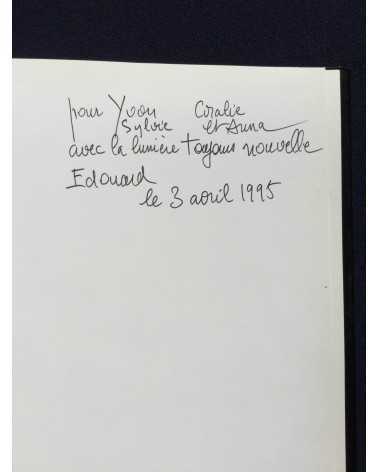 pour Yvon Coralie
Sylvie et Anna
avec la lumière toujours nouvelle
Edouard
le 3 avril 1995